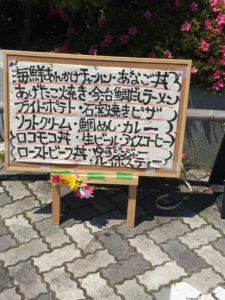 海鮮あんかけチャーハン・あなご丼
あげたこ焼き・今治鯛だしラーメン
フライドポテト・石窯焼きピザ
ソフトクリーム・鯛めし・カレー
ロコモコ丼・生ビール アイスコーヒー
ローストビーフ丼・ゆずジンジャー